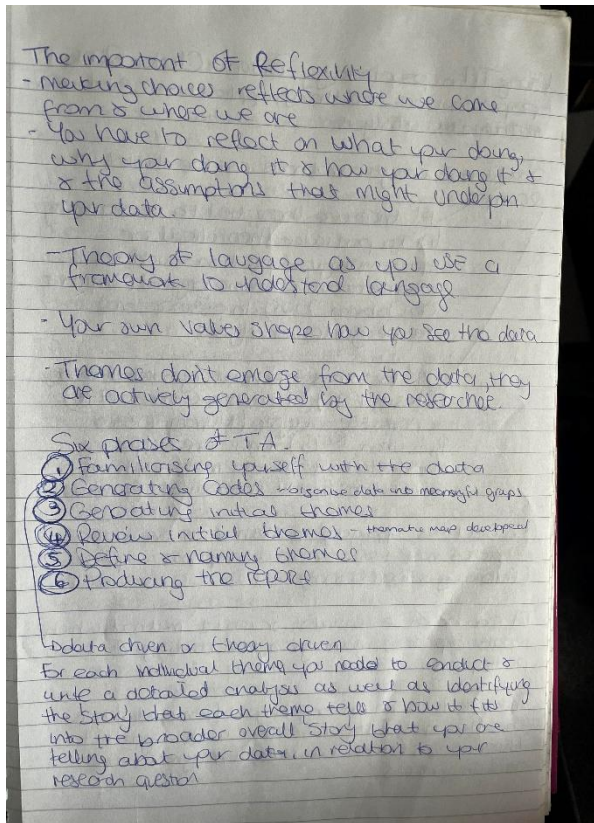 The important of Reflexivity
- making choices reflects where we come
from & where we are
- You have to reflect on what your doing,
why your doing it & how your doing it &
& the assumptions that might underpin
your data.
- Theory of laugage as you use a
framework to understand language
- Your own values shape how you see the data
- Themes don't emerge from the data, they
are actively generated by the researcher.
Six phases of TA.
1 Familiarising yourself with the data
2 Generating Codes - organise data into meaningful groups
3 Generating initial themes
4 Review initial themes - thematic map developed
5 Define & naming themes
6 Producing the report
data driven or theory driven
For each individual theme you need to conduct &
write a detailed analysis as well as identifying
the story that each theme tells & how it fits
into the broader overall story that you are
telling about your data, in relation to your
research question